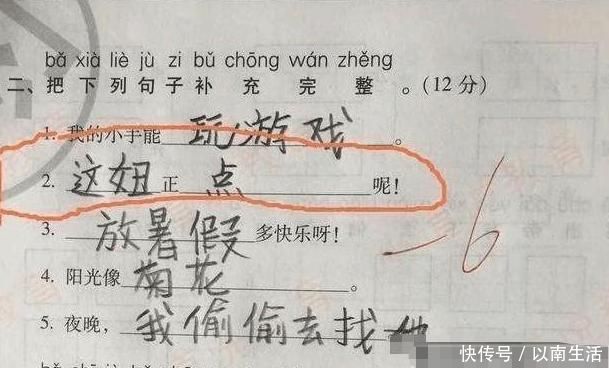 bǎ xià liè jù zi bǔ chōng wán zhěng
二、把下列句子补充完整。(12分)
1. 我的小手能玩游戏。
2. 这妞正点呢!
3. 放暑假多快乐呀!
-6
4. 阳光像菊花。
5. 夜晚,我偷偷去找她
快传号/以南生活